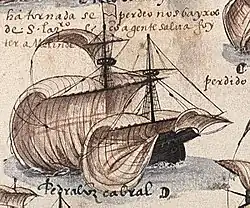 ha tornada se perdeo nos bayxos
de S. lazro e a gente salua foy
ter a Melinde
perdido
Pedraluz cabral D